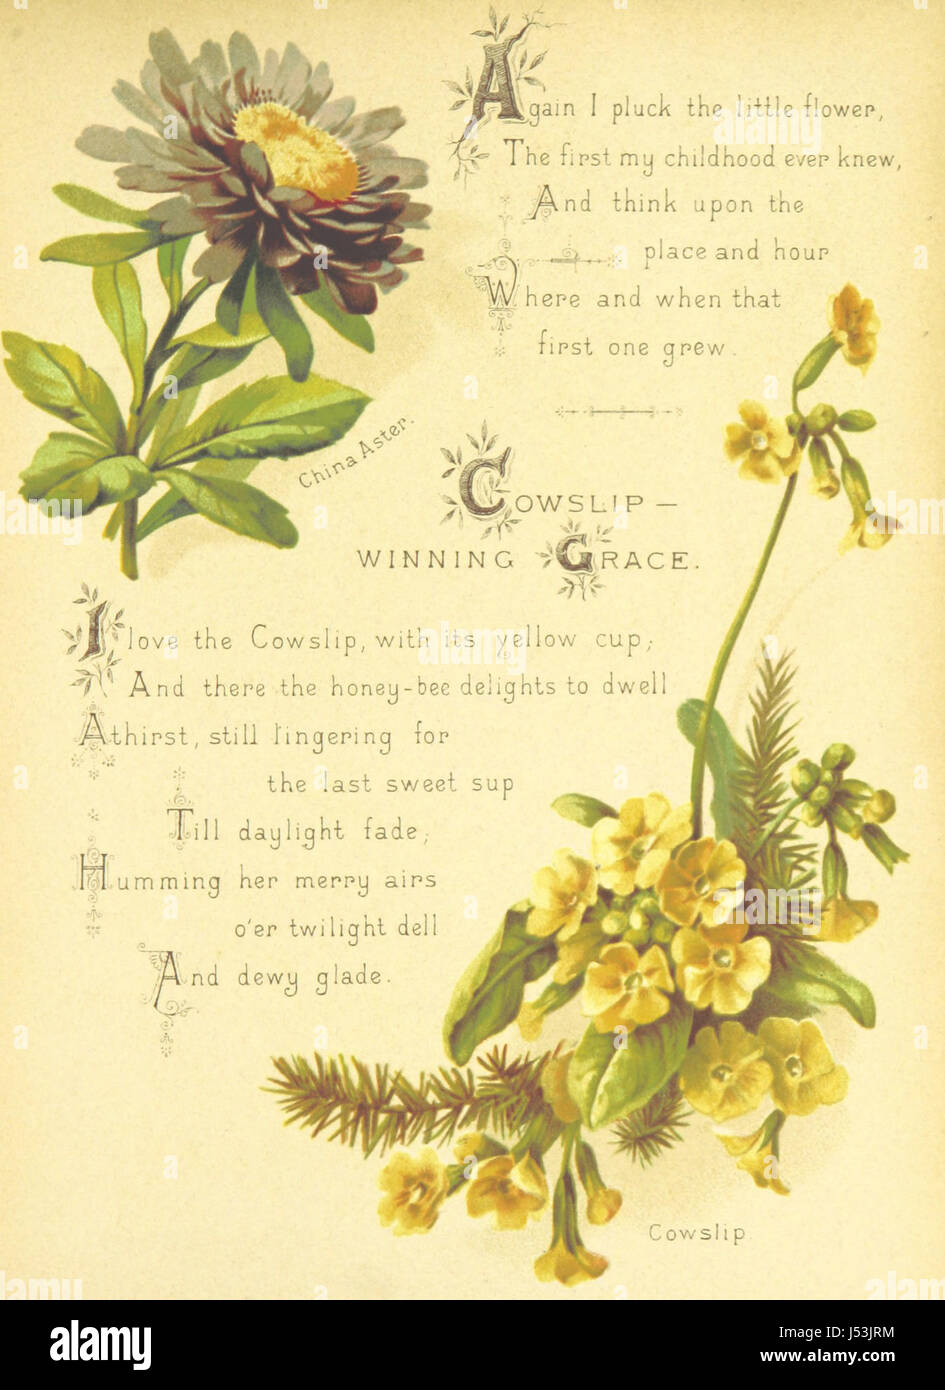 Again I pluck the little flower,
The first my childhood ever knew,
And think upon the
place and hour
Where and when that
first one grew.
China Aster.
COWSLIP—
WINNING GRACE.
I love the Cowslip, with its yellow cup;
And there the honey-bee delights to dwell
Athirst, still lingering for
the last sweet sup
Till daylight fade;
Humming her merry airs
o'er twilight dell
And dewy glade.
Cowslip.
alamy
Image ID: J53JRM
www.alamy.com